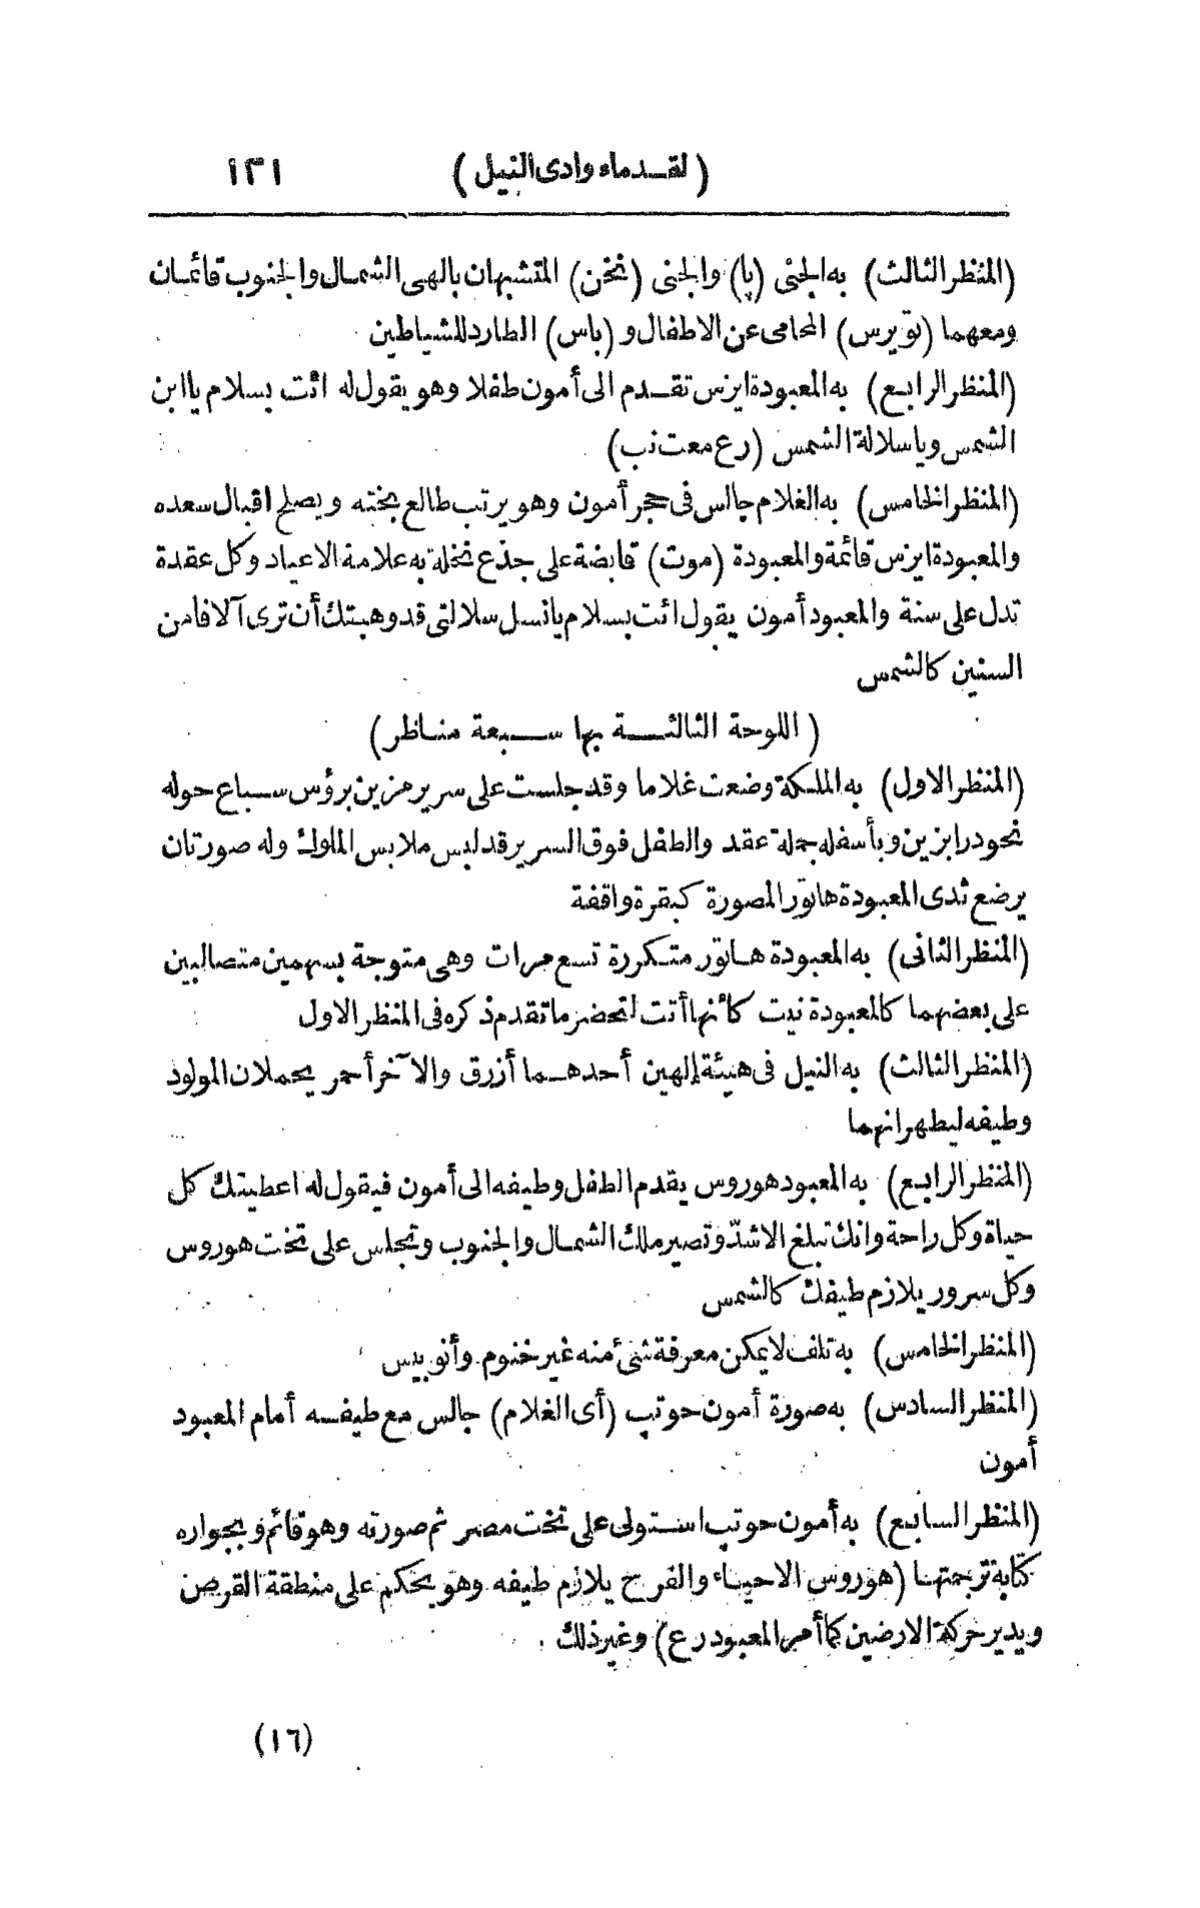 (لقدماء وادى النيل) ١٣١
(المنظر الثالث) به الجنى (پا) والجنى (نخن) المتشبهان بالهى الشمال والجنوب قائمان
ومعهما (تويرس) المحامى عن الاطفال و (باس) الطارد للشياطين
(المنظر الرابع) به المعبودة ايزس تقدم الى أمون طفلا وهو يقول له ائت بسلام يا ابن
الشمس وياسلالة الشمس (رع معت نب)
(المنظر الخامس) به الغلام جالس فى حجر أمون وهو يرتب طالع بخته ويصلح اقبال سعده
والمعبودة ايزس قائمة والمعبودة (موت) قابضة على جذع نخلة به علامة الاعياد وكل عقدة
تدل على سنة والمعبود أمون يقول ائت بسلام يا نسل سلالتى قد وهبتك أن ترى آلافا من
السنين كالشمس
(اللوحة الثالثة بها سبعة مناظر)
(المنظر الاول) به الملكة وضعت غلاما وقد جلست على سرير مزين برؤس سباع حوله
نحو درابزين وبأسفله جملة عقد والطفل فوق السرير قد لبس ملابس الملوك وله صورتان
يرضع ثدى المعبودة هاتور المصورة كبقرة واقفة
(المنظر الثانى) به المعبودة هاتور متكررة تسع مرات وهى متوجة بسهمين متصالبين
على بعضهما كالمعبودة نيت كأنها أتت لتحضر ما تقدم ذكره فى المنظر الاول
(المنظر الثالث) به النيل فى هيئة إلهين أحدهما أزرق والآخر أحمر يحملان المولود
وطيفه ليطهرانهما
(المنظر الرابع) به المعبود هوروس يقدم الطفل وطيفه الى أمون فيقول له اعطيتك كل
حياة وكل راحة وانك تبلغ الاشدّ وتصير ملك الشمال والجنوب وتجلس على تخت هوروس
وكل سرور يلازم طيفك كالشمس
(المنظر الخامس) به تلف لا يمكن معرفة شئ منه غير خنوم وأنوبيس
(المنظر السادس) به صورة أمون حوتب (أى الغلام) جالس مع طيفه أمام المعبود
أمون
(المنظر السابع) به أمون حوتب استولى على تخت مصر ثم صورته وهو قائم وبجواره
كتابة ترجمتها (هوروس الاحياء والفرح يلازم طيفه وهو يحكم على منطقة القرص
ويدير حركة الارضين كما أمر المعبود رع) وغير ذلك.
(١٦)